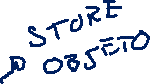 STORE
OBSETO